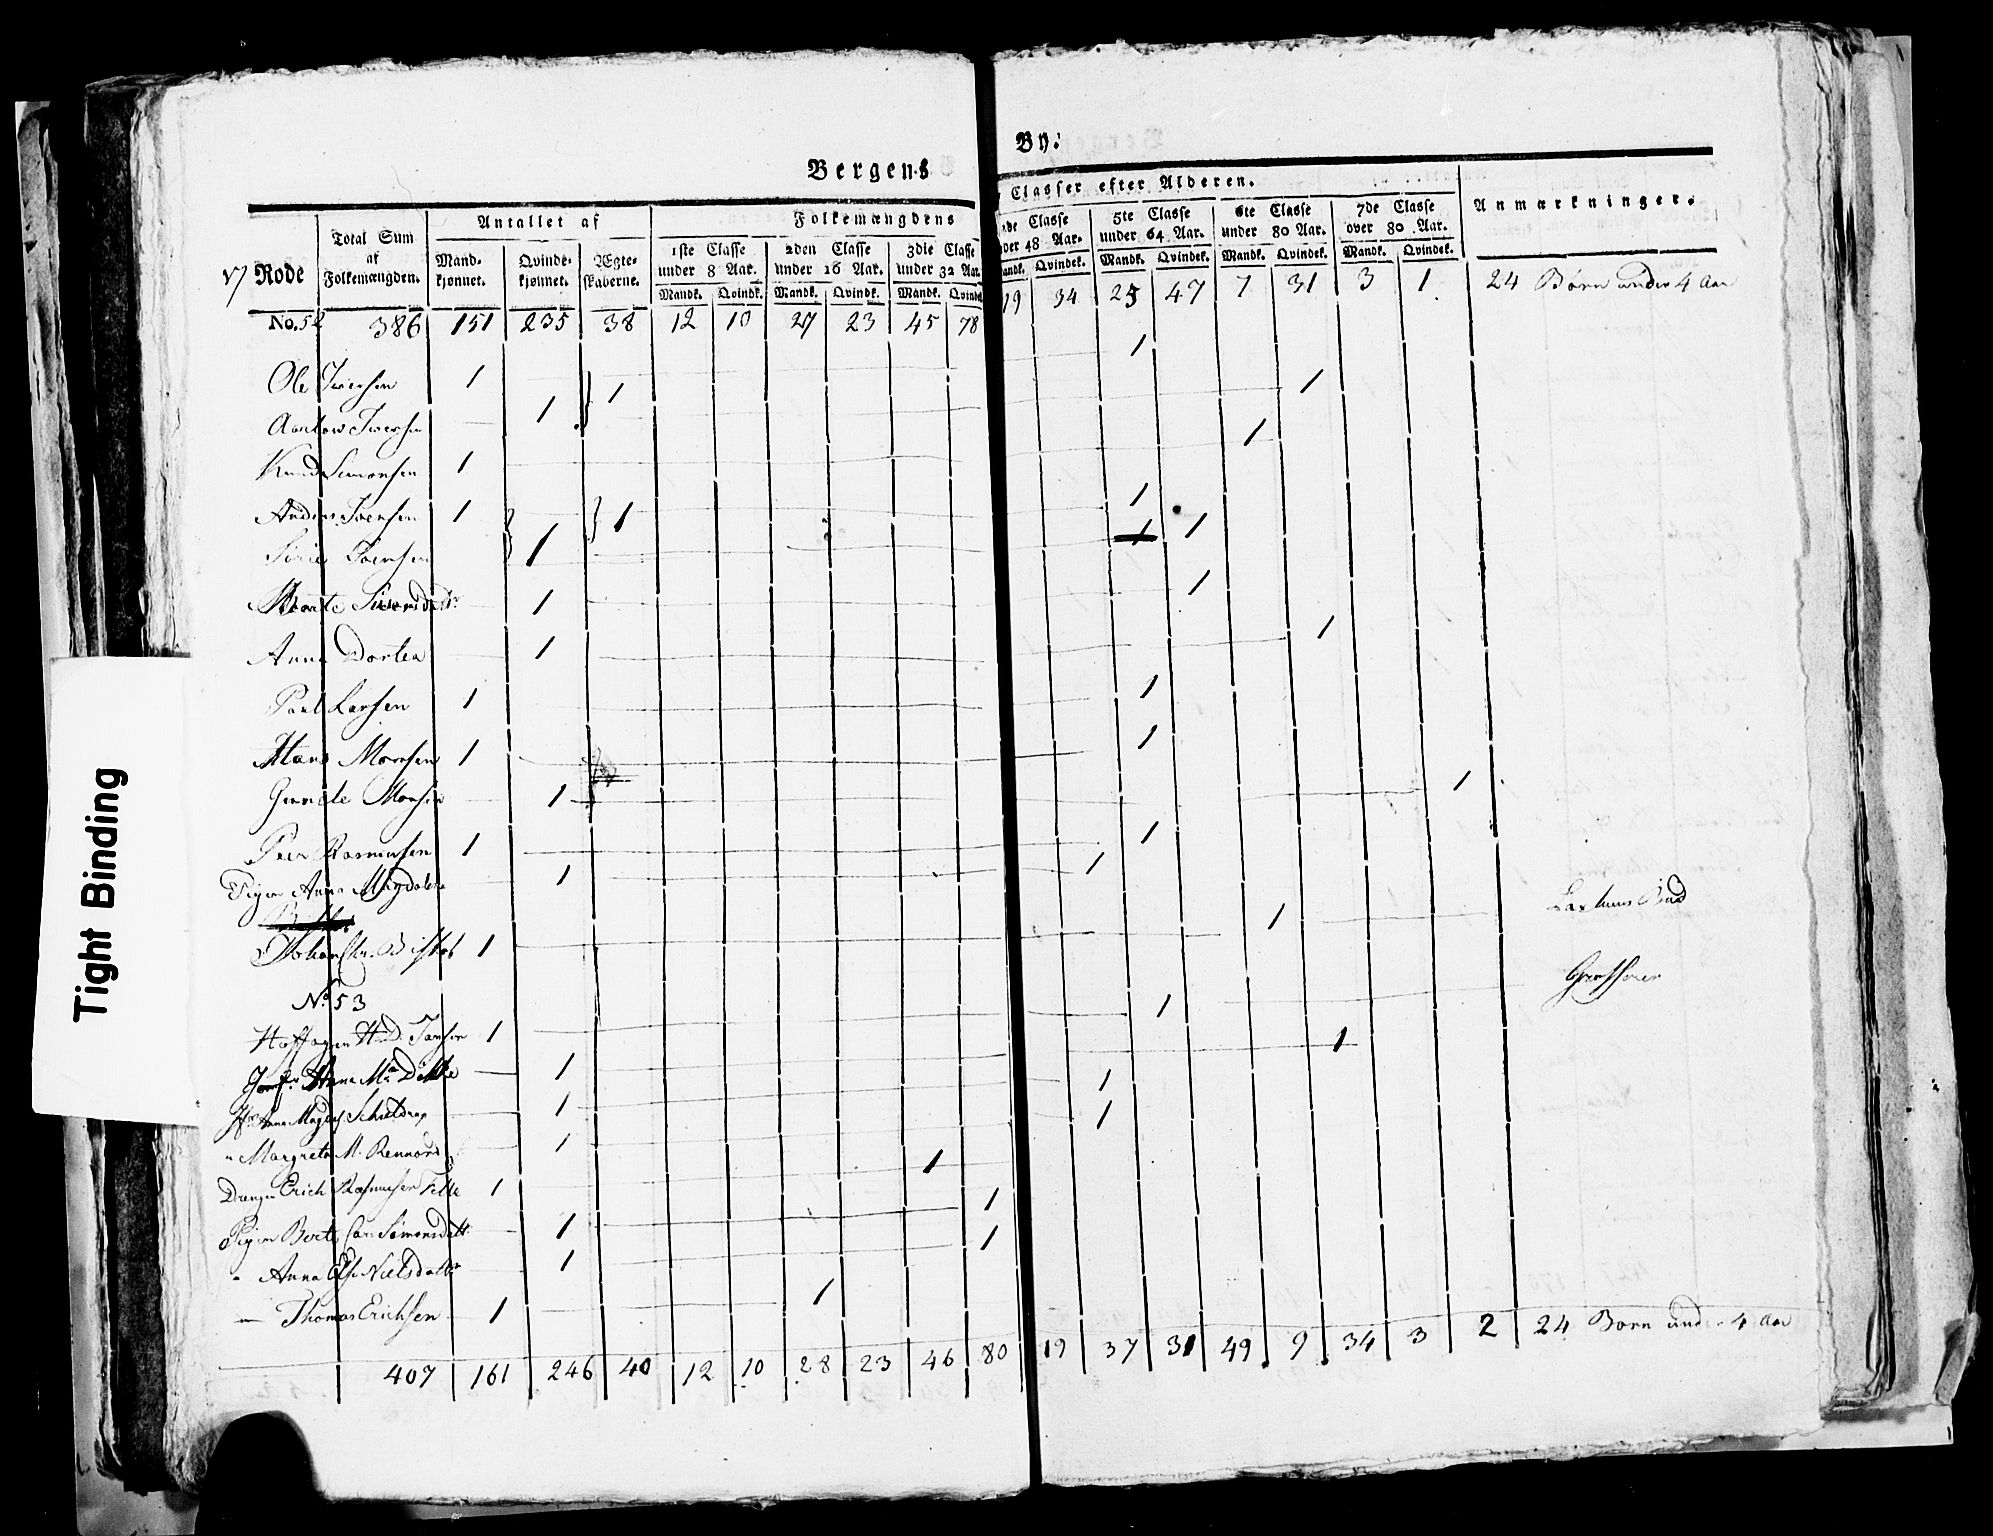 Bergens By:
Classer efter Alderen.
17 Rode
Total Sum af Folkemængden.
Antallet af
Mandkjønnet. Qvindekjønnet. Ægteskaberne.
Folkemængdens
1ste Classe under 8 Aar. 2den Classe under 16 Aar. 3die Classe under 32 Aar. Classe 48 Aar. 5te Classe under 64 Aar. 6te Classe under 80 Aar. 7de Classe over 80 Aar.
Anmærkninger.
Mandk. Qvindk. Mandk. Qvindk. Mandk. Qvindek. Mandk. Qvindek. Mandk. Qvindek. Mandk. Qvindek. Mandk. Qvindek.
No. 52 386 151 235 38 12 10 27 23 45 78 19 34 25 47 7 31 3 1 24 Børn under 4 Aar
Ole Iversen 1 1 1
Iversen 1 1
Knud Simonsen 1 1
Anders Iversen 1 1 1
Iversen 1 1 1
1 1
Anna Dortea 1 1
Paul Larsen 1 1
Hans Monsen 1 1
Monsen 1 1
Peer Rasmusen 1 1
Pigen Anna Magdalena 1 1
Johan Chr. Biskob 1 1 Bud
No 53
Jansen 1 1 Grosserer
Anna Ma 1 1
Jfr Anna Magd. 1 1
" Margreta M. Rennord 1 1
Drengen Erich Rasmusen 1 1
Pigen Berte Car. Simonsdatt. 1 1
" Anna Els. Nielsdattr 1 1
— Thomas Erichsen 1 1
407 161 246 40 12 10 28 23 46 80 19 37 31 49 9 34 3 2 24 Born under 4 Aar
Tight Binding